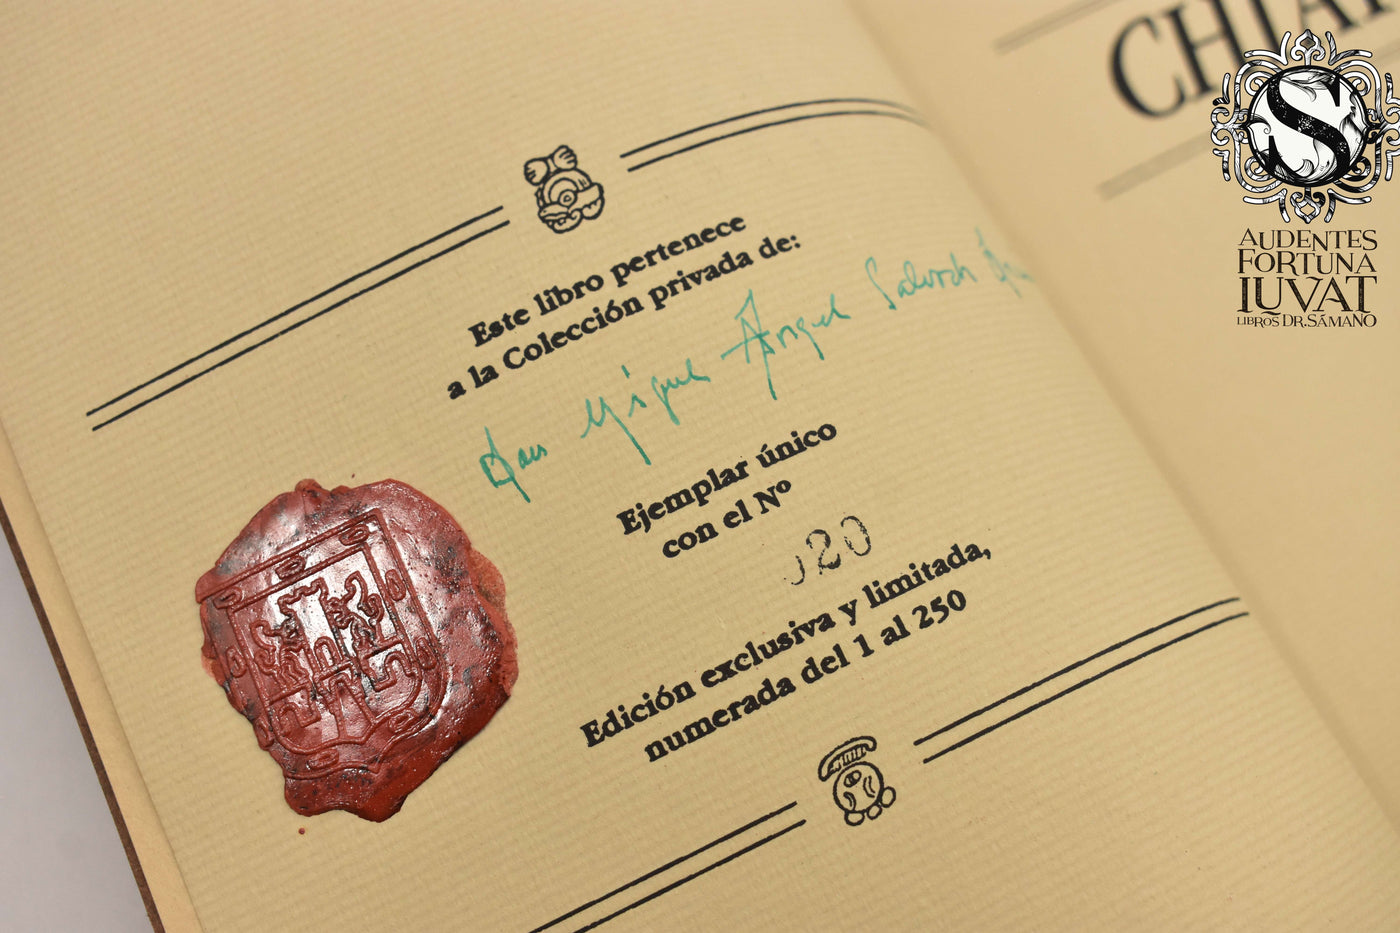 Este libro pertenece
a la Colección privada de:
Miguel Ángel
Ejemplar único
con el Nº
020
Edición exclusiva y limitada,
numerada del 1 al 250
S
AUDENTES
FORTUNA
IUVAT
LIBROS DR. SÁMANO